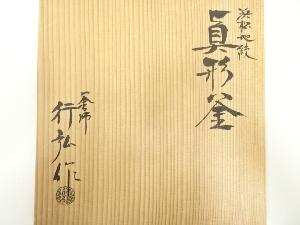 浜松地紋
真形釜
釜師
行弘作